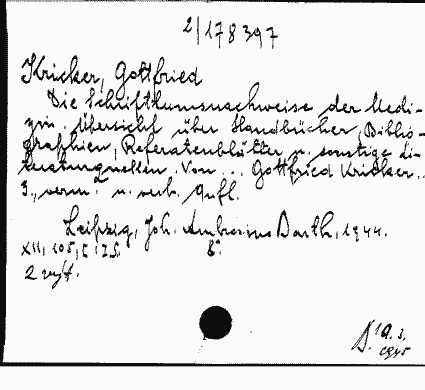 2/178397
Kricker, Gottfried
Die Schrifttumsnachweise der Medi-
zin. Übersicht über Handbücher, Biblio-
graphien, Referatenblätter u. sonstige Li-
teraturquellen. Von ... Gottfried Kricker...
3., verm. u. verb. Aufl.
Leipzig, Joh. Ambrosius Barth, 1944.
XII, 105, 8°.
2
19. 3.
1945